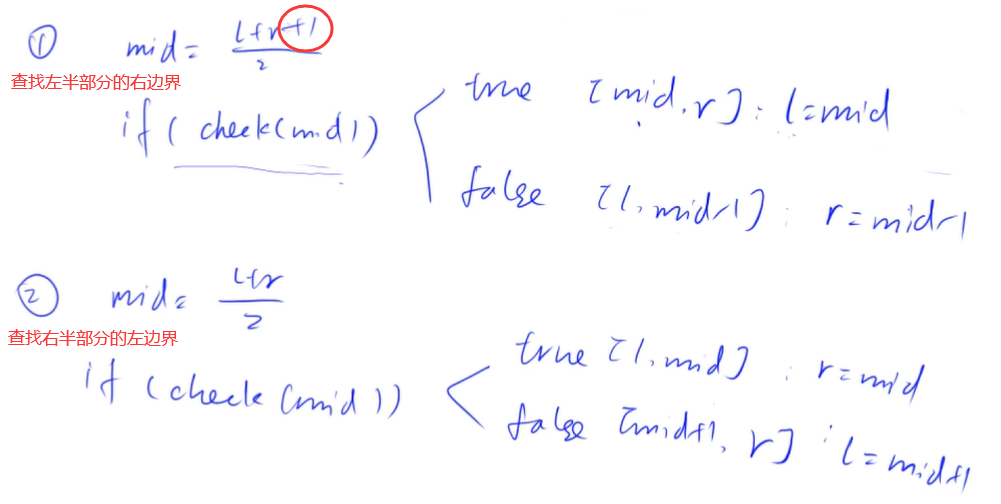 ① mid = (l+r+1)/2
查找左半部分的右边界
if ( check(mid) )
true [mid, r] : l=mid
false [l, mid-1] : r=mid-1
② mid = (l+r)/2
查找右半部分的左边界
if (check (mid))
true [l, mid] : r=mid
false [mid+1, r] : l=mid+1